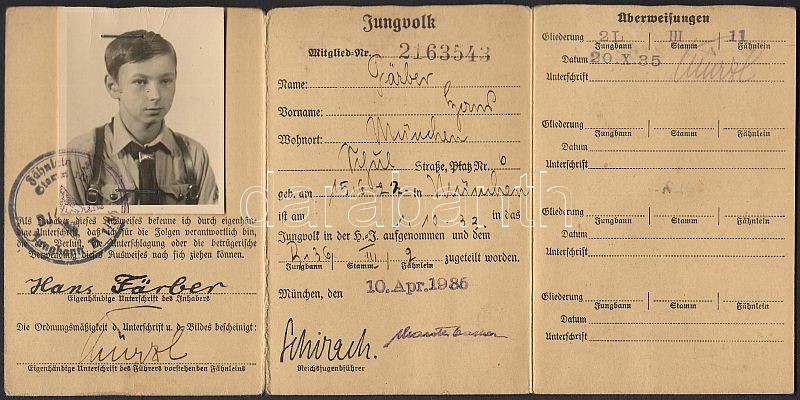 Fähnlein
Jungbann B.
Als Inhaber dieses Ausweises bekenne ich durch eigenhän-
dige Unterschrift, daß ich für die Folgen verantwortlich bin,
die Verlust, Unterschlagung oder die betrügerische
Verwendung dieses Ausweises nach sich ziehen können.
Hans Färber
Eigenhändige Unterschrift des Inhabers
Die Ordnungsmäßigkeit d. Unterschrift u. d. Bildes bescheinigt:
Eigenhändige Unterschrift des Führers vorstehenden Fähnleins
Jungvolk
Mitglied-Nr. 2163543
Name: Färber
Vorname: Hans
Wohnort: München
Straße, Platz Nr. 0
geb. am 15. 22 in München
ist am 1 10 32 in das
Jungvolk in der H.-J. aufgenommen und dem
B. 36 III 9
Jungbann Stamm Fähnlein zugeteilt worden.
München, den 10. Apr. 1935
Schirach.
Reichsjugendführer
Überweisungen
Gliederung 2L III 11
Jungbann Stamm Fähnlein
Datum 20.X 35
Unterschrift
Gliederung
Jungbann Stamm Fähnlein
Datum
Unterschrift
Gliederung
Jungbann Stamm Fähnlein
Datum
Unterschrift
Gliederung
Jungbann Stamm Fähnlein
Datum
Unterschrift
darabanth